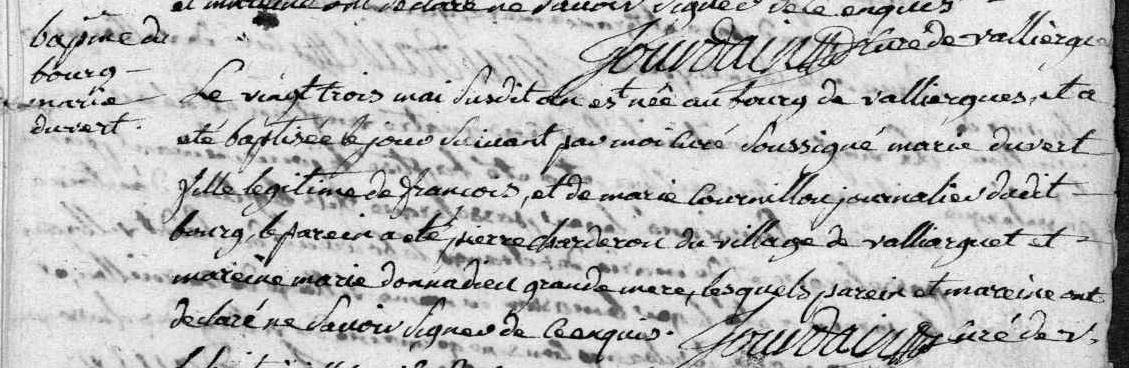 et mareine ont declaré ne savoir signer de ce enquis
Jourdain curé de vallierque
baptme du
bourg
marie
duvert.
Le vingt trois mai susdit an est née au bourg de vallierques, et a
eté baptisée le jour suivant par moi curé soussigné marie duvert
fille legitime de françois, et de marie Cournillon journalier dudit
bourg, le parein a eté pierre charderon du village de valliarguet et
mareine marie donnadieu grande mere, lesquels parein et mareine ont
declaré ne savoir signer de ce enquis.
Jourdain curé de v.